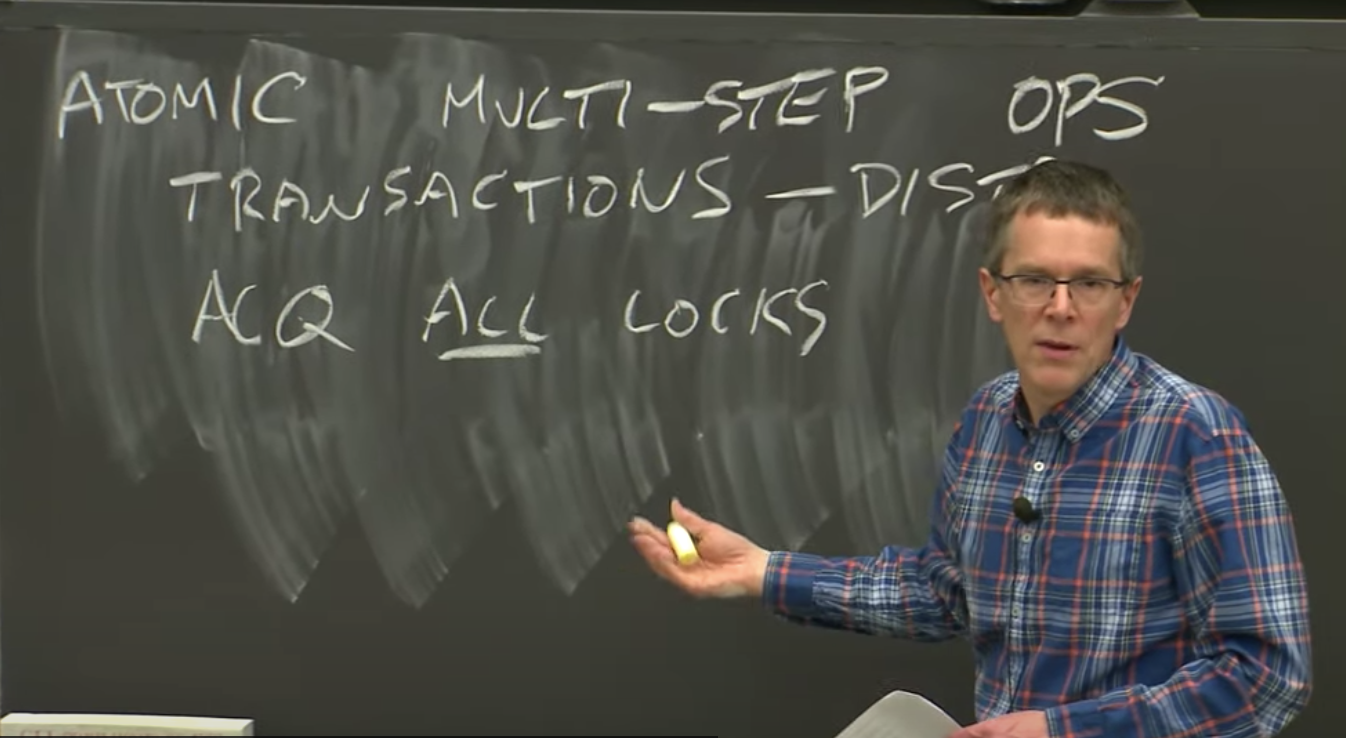 ATOMIC MULTI-STEP OPS
TRANSACTIONS - DIST
ACQ ALL LOCKS